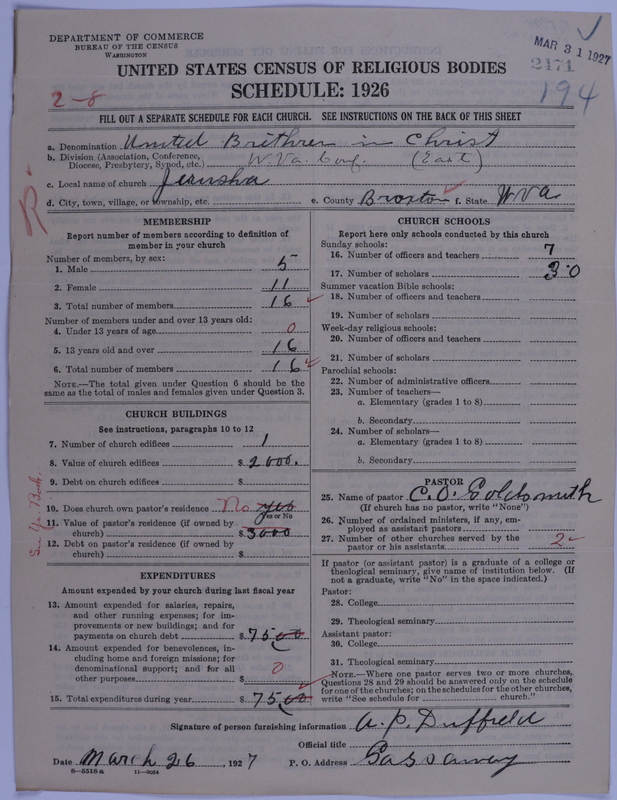 DEPARTMENT OF COMMERCE
BUREAU OF THE CENSUS
WASHINGTON
MAR 31 1927
2171
194
UNITED STATES CENSUS OF RELIGIOUS BODIES
2-8
SCHEDULE: 1926
FILL OUT A SEPARATE SCHEDULE FOR EACH CHURCH. SEE INSTRUCTIONS ON THE BACK OF THIS SHEET
a. Denomination United Brethren in Christ
b. Division (Association, Conference, Diocese, Presbytery, Synod, etc.) W. Va. Conf. (East)
c. Local name of church
d. City, town, village, or township, etc. e. County Braxton f. State W Va
R
MEMBERSHIP
Report number of members according to definition of
member in your church
Number of members, by sex:
1. Male 5
2. Female 11
3. Total number of members 16
Number of members under and over 13 years old:
4. Under 13 years of age 0
5. 13 years old and over 16
6. Total number of members 16
NOTE.—The total given under Question 6 should be the
same as the total of males and females given under Question 3.
CHURCH BUILDINGS
See instructions, paragraphs 10 to 12
7. Number of church edifices 1
8. Value of church edifices $ 2000.
9. Debt on church edifices $
10. Does church own pastor's residence No yes
Yes or No
11. Value of pastor's residence (if owned by
church) $ 3000
12. Debt on pastor's residence (if owned by
church) $
See Yr. Book.
EXPENDITURES
Amount expended by your church during last fiscal year
13. Amount expended for salaries, repairs,
and other running expenses; for im-
provements or new buildings; and for
payments on church debt $ 75 00
14. Amount expended for benevolences, in-
cluding home and foreign missions; for
denominational support; and for all
other purposes $ 0
15. Total expenditures during year $ 75 00
CHURCH SCHOOLS
Report here only schools conducted by this church
Sunday schools:
16. Number of officers and teachers 7
17. Number of scholars 30
Summer vacation Bible schools:
18. Number of officers and teachers
19. Number of scholars
Week-day religious schools:
20. Number of officers and teachers
21. Number of scholars
Parochial schools:
22. Number of administrative officers
23. Number of teachers—
a. Elementary (grades 1 to 8)
b. Secondary
24. Number of scholars—
a. Elementary (grades 1 to 8)
b. Secondary
PASTOR
25. Name of pastor C. O. Goldsmith
(If church has no pastor, write "None")
26. Number of ordained ministers, if any, em-
ployed as assistant pastors
27. Number of other churches served by the
pastor or his assistants 2
If pastor (or assistant pastor) is a graduate of a college or
theological seminary, give name of institution below. (If
not a graduate, write "No" in the space indicated.)
Pastor:
28. College
29. Theological seminary
Assistant pastor:
30. College
31. Theological seminary
NOTE.—Where one pastor serves two or more churches,
Questions 28 and 29 should be answered only on the schedule
for one of the churches; on the schedules for the other churches,
write "See schedule for church."
Signature of person furnishing information A. P. Duffield
Official title
Date March 26, 1927 P. O. Address Gassaway
8—5518 a 11—9034